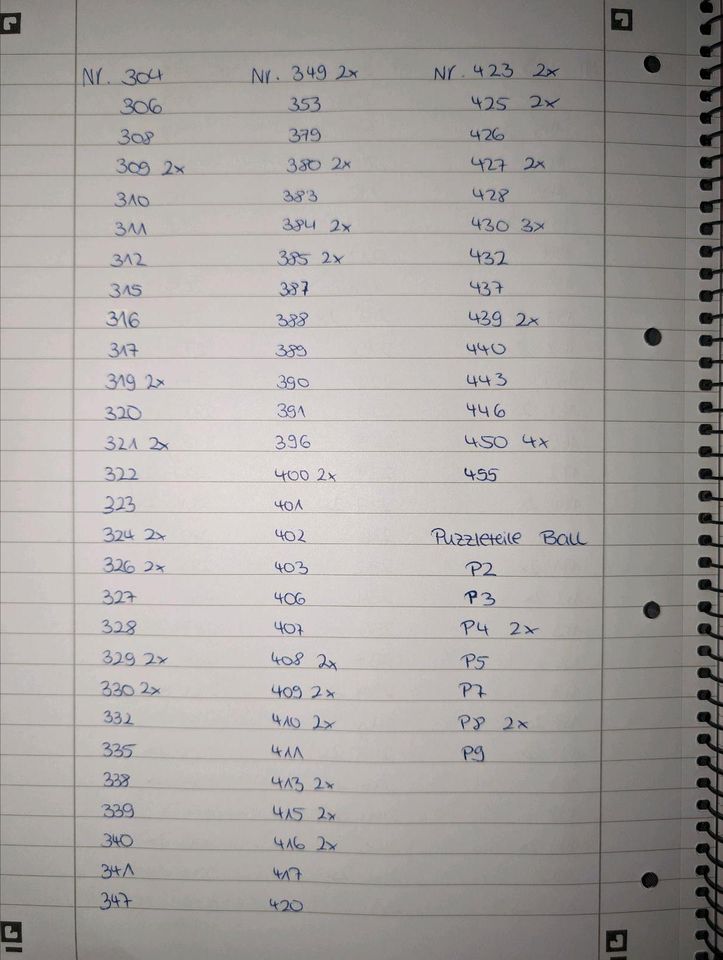 Nr. 304
306
308
309 2x
310
311
312
315
316
317
319 2x
320
321 2x
322
323
324 2x
326 2x
327
328
329 2x
330 2x
332
335
338
339
340
341
347
Nr. 349 2x
353
379
380 2x
383
384 2x
385 2x
387
388
389
390
391
396
400 2x
401
402
403
406
407
408 2x
409 2x
410 2x
411
413 2x
415 2x
416 2x
417
420
Nr. 423 2x
425 2x
426
427 2x
428
430 3x
432
437
439 2x
440
443
446
450 4x
455
Puzzleteile Ball
P2
P3
P4 2x
P5
P7
P8 2x
P9